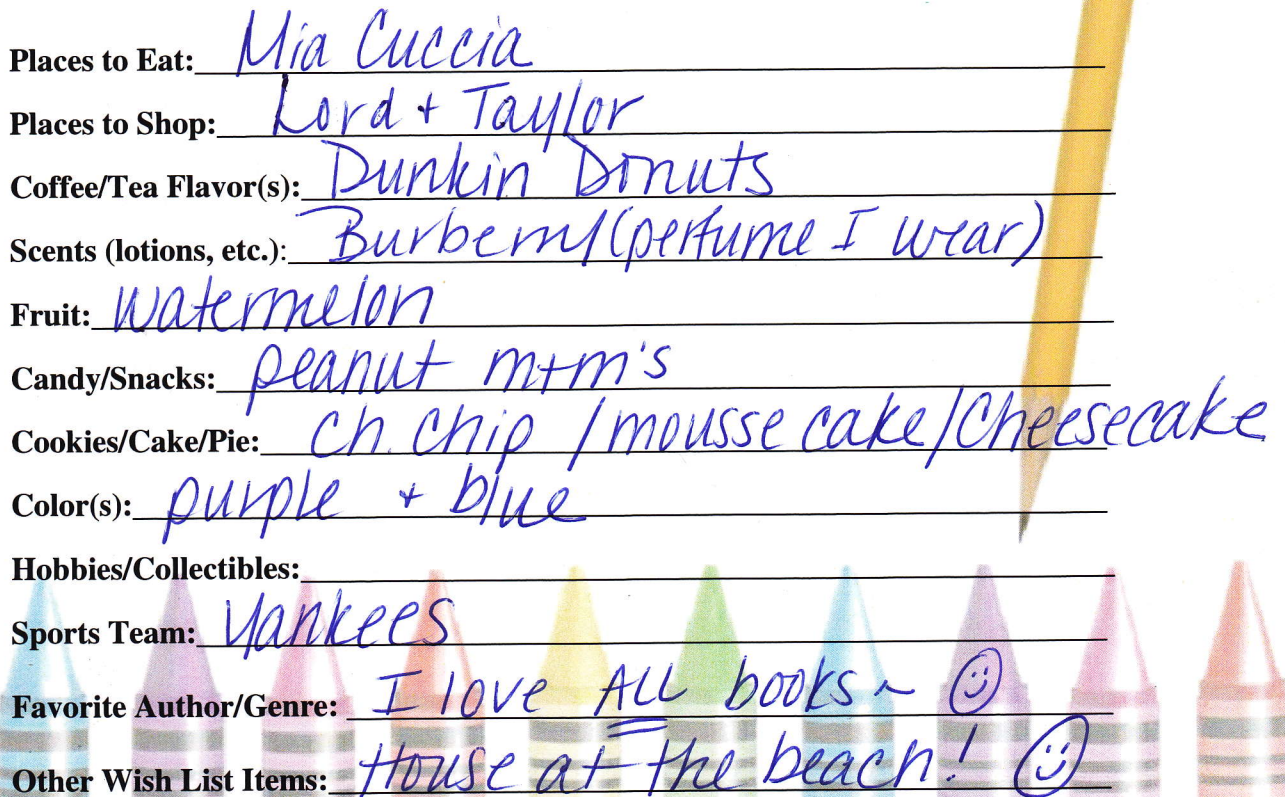 Places to Eat: Mia Cuccia
Places to Shop: Lord + Taylor
Coffee/Tea Flavor(s): Dunkin Donuts
Scents (lotions, etc.): Burberry (perfume I wear)
Fruit: Watermelon
Candy/Snacks: peanut m+m's
Cookies/Cake/Pie: Ch. Chip / mousse cake/Cheesecake
Color(s): purple + blue
Hobbies/Collectibles:
Sports Team: Yankees
Favorite Author/Genre: I love ALL books ~ ☺
Other Wish List Items: House at the beach! ☺